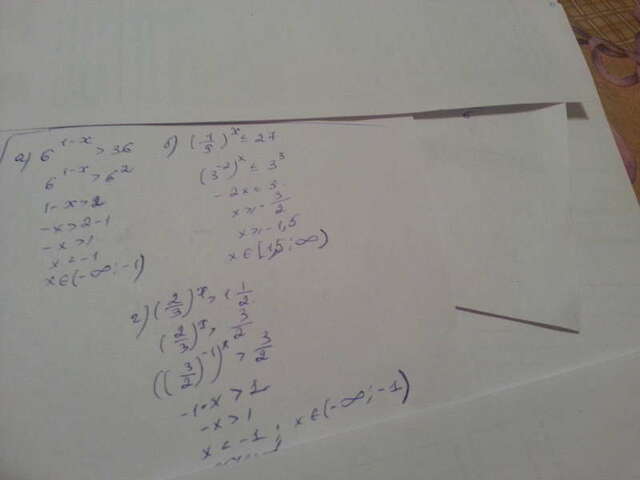 а) 6^(1-x) > 36
6^(1-x) > 6^2
1-x > 2
-x > 2-1
-x > 1
x < -1
x ∈ (-∞; -1)
б) (1/9)^x ≤ 27
(3^(-2))^x ≤ 3^3
-2x ≤ 3
x ≥ -3/2
x ≥ -1,5
x ∈ [1,5; ∞)
г) (2/3)^x > 1 1/2
(2/3)^x > 3/2
((3/2)^(-1))^x > 3/2
-1·x > 1
-x > 1
x < -1; x ∈ (-∞; -1)